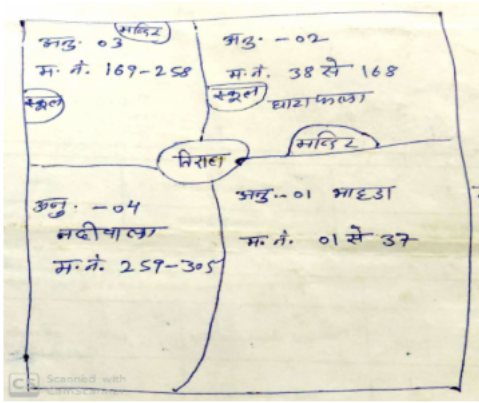 मन्दिर
अनु. 03
म. नं. 169-258
स्कूल
अनु. -02
म. नं. 38 से 168
स्कूल
घाटाफला
मन्दिर
तिराहा
अनु. -04
नदीवाला
म. नं. 259-305
अनु. -01 भाहडा
म. नं. 01 से 37
CS Scanned with
CamScanner